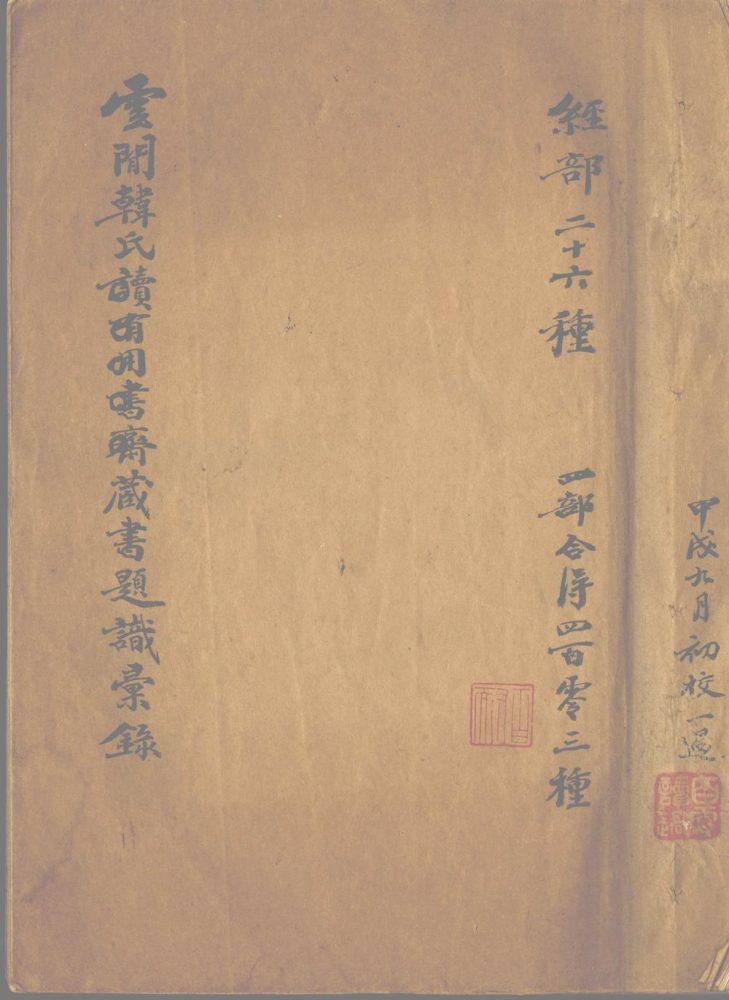 甲戌九月初校一過
經部二十六種 四部合得四百零三種
雲間韓氏讀有用書齋藏書題識彙錄